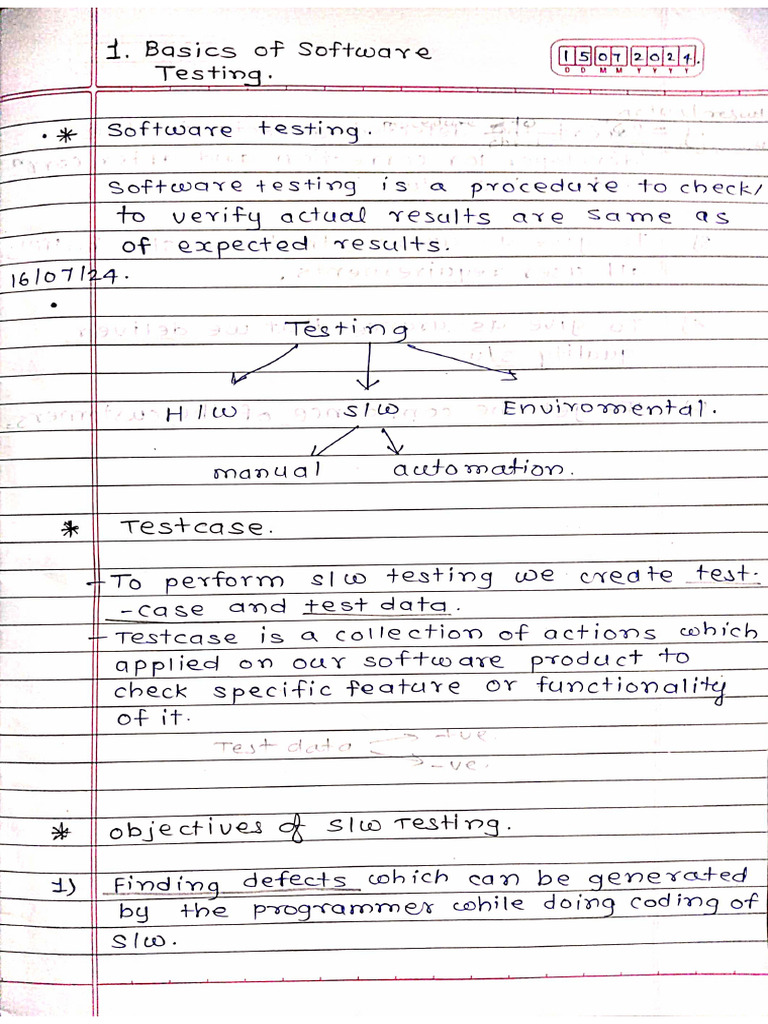 1. Basics of Software
Testing.
15072024.
D D M M Y Y Y Y
* Software testing.
Software testing is a procedure to check/
to verify actual results are same as
of expected results.
16/07/24.
Testing
H/W S/W Enviromental.
manual automation.
* Testcase.
- To perform S/W testing we create test-
-case and test data.
- Testcase is a collection of actions which
applied on our software product to
check specific feature or functionality
of it.
Test data +ve.
-ve.
* Objectives of S/W Testing.
1) Finding defects which can be generated
by the programmer while doing coding of
S/W.